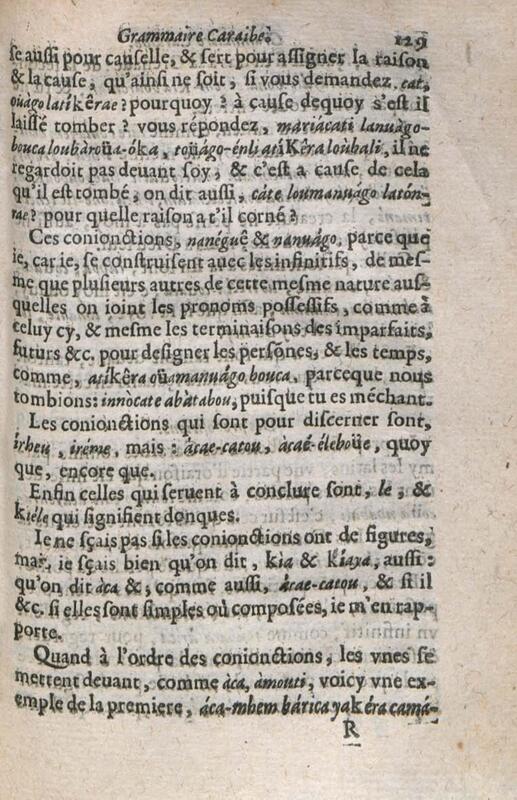 Grammaire Caraibe. 129
se aussi pour causelle, & sert pour assigner la raison
& la cause, qu'ainsi ne soit, si vous demandez. cat,
oüágo latikêrae? pourquoy? à cause dequoy s'est il
laissé tomber? vous répondez, mariácati lanuágo-
bouca loubároüa-óka, toüágo-énli atiKêra loubali, il ne
regardoit pas deuant soy, & c'est a cause de cela
qu'il est tombé, on dit aussi, cáte loumanuágo latón-
rae? pour quelle raison a t'il corné?
Ces conionctions, nanéguê & nanuágo, parce que
ie, car ie, se construisent auec les infinitifs, de mes-
me que plusieurs autres de cette mesme nature aus-
quelles on ioint les pronoms possessifs, comme à
celuy cy, & mesme les terminaisons des imparfaits,
futurs &c. pour designer les persõnes, & les temps,
comme, atikêra oüamanuágo bouca, parceque nous
tombions: innocate abátabou, puisque tu es méchant.
Les conionctions qui sont pour discerner sont,
írheu, iréme, mais: ácae-catou, àcaé-éleboüe, quoy
que, encore que.
Enfin celles qui seruent à conclure sont, le, &
kiéle qui signifient donques.
Ie ne sçais pas si les conionctions ont de figures,
mais, ie sçais bien qu'on dit, kia & kíaya, aussi:
qu'on dit àca &; comme aussi, ácae-catou, & si il
&c. si elles sont simples où composées, ie m'en rap-
porte.
Quand à l'ordre des conionctions, les vnes se
mettent deuant, comme àca, àmouti, voicy vne ex-
emple de la premiere, áca-mhem bárica yakéra camá-
R